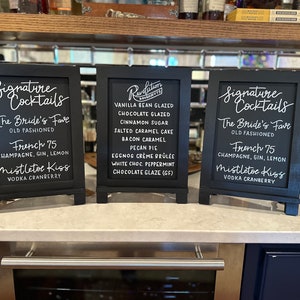 Signature
Cocktails
The Bride's Fave
OLD FASHIONED
French 75
CHAMPAGNE, GIN, LEMON
Mistletoe Kiss
VODKA CRANBERRY
Revolution
VANILLA BEAN GLAZED
CHOCOLATE GLAZED
CINNAMON SUGAR
SALTED CARAMEL CAKE
BACON CARAMEL
PECAN PIE
EGGNOG CRÈME BRÛLÉE
WHITE CHOC. PEPPERMINT
CHOCOLATE GLAZE (GF)
Signature
Cocktails
The Bride's Fave
OLD FASHIONED
French 75
CHAMPAGNE, GIN, LEMON
Mistletoe Kiss
VODKA CRANBERRY